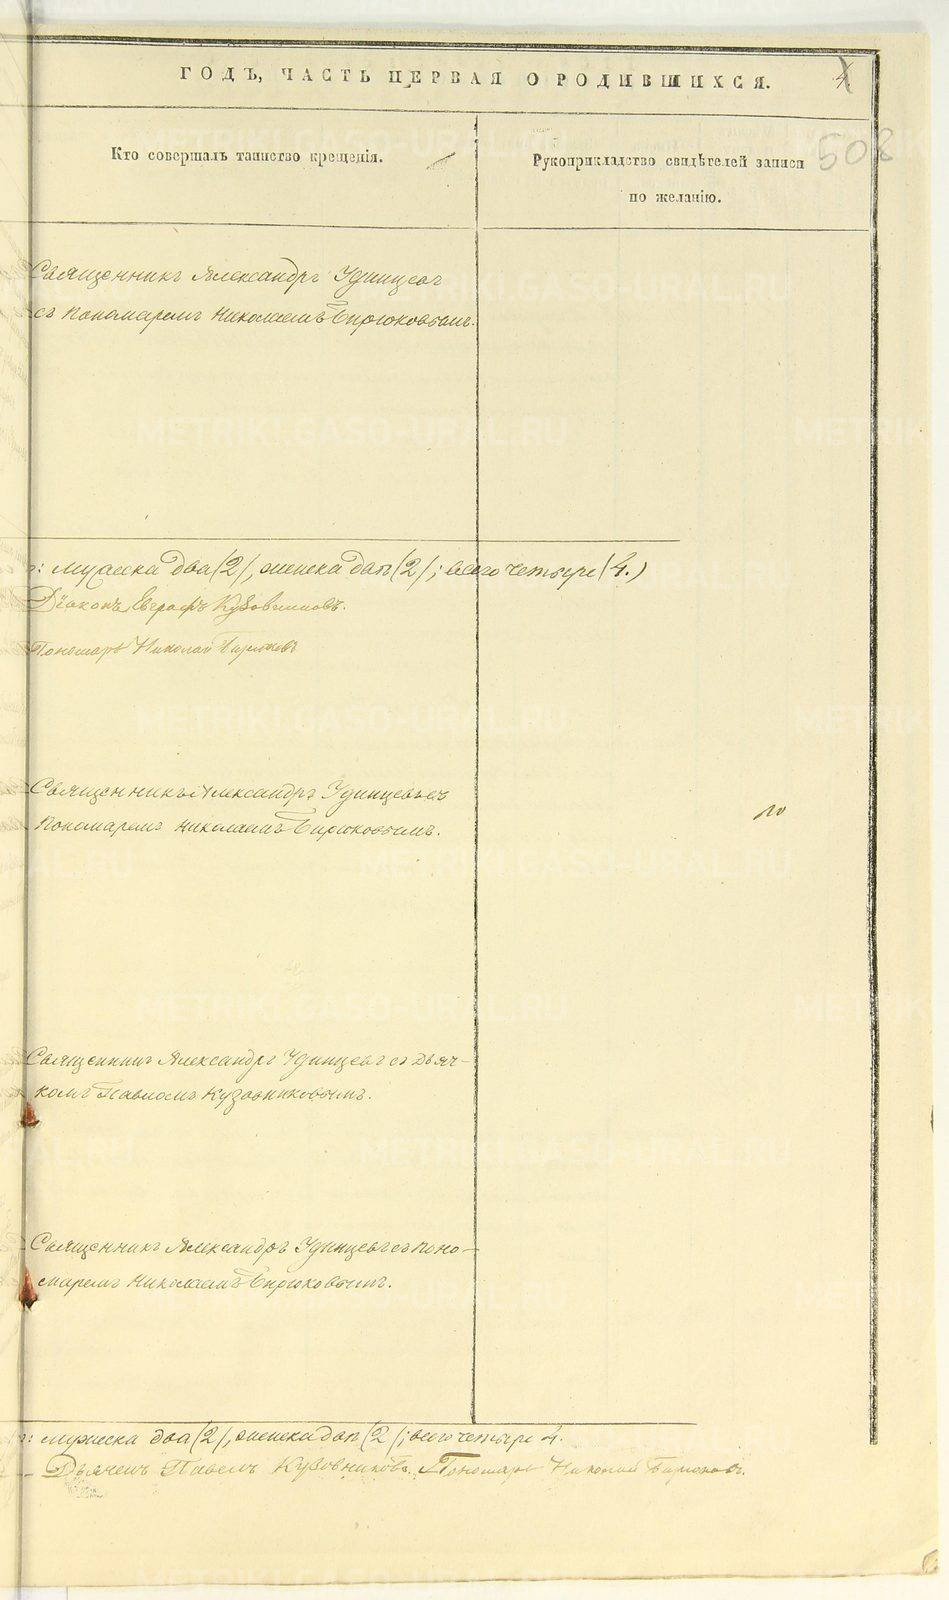 ГОДЪ, ЧАСТЬ ПЕРВАЯ О РОДИВШИХСЯ.
508
Кто совершалъ таинство крещенія.
Рукоприкладство свидѣтелей записи
по желанію.
Священникъ Александръ Удинцевъ
съ Пономаремъ Николаемъ Бирюковымъ.
муж­еска два (2), женска двѣ (2); всего четыре (4.)
Діаконъ Кузовниковъ.
Пономарь Николай Бирюковъ
Священникъ Александръ Удинцевъ съ
Пономаремъ Николаемъ Бирюковымъ.
Священникъ Александръ Удинцевъ съ Дьяч-
комъ Павломъ Кузовниковымъ.
Священникъ Александръ Удинцевъ съ Поно-
маремъ Николаемъ Бирюковымъ.
мужеска два (2), женска двѣ (2); всего четыре 4.
Дьячекъ Павелъ Кузовниковъ. Пономарь Николай Бирюковъ.
METRIKI.GASO-URAL.RU